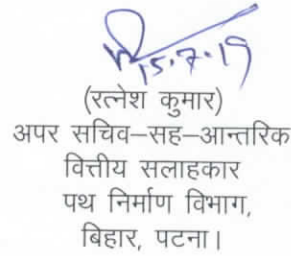 15.7.19
(रत्नेश कुमार)
अपर सचिव–सह–आन्तरिक
वित्तीय सलाहकार
पथ निर्माण विभाग,
बिहार, पटना।